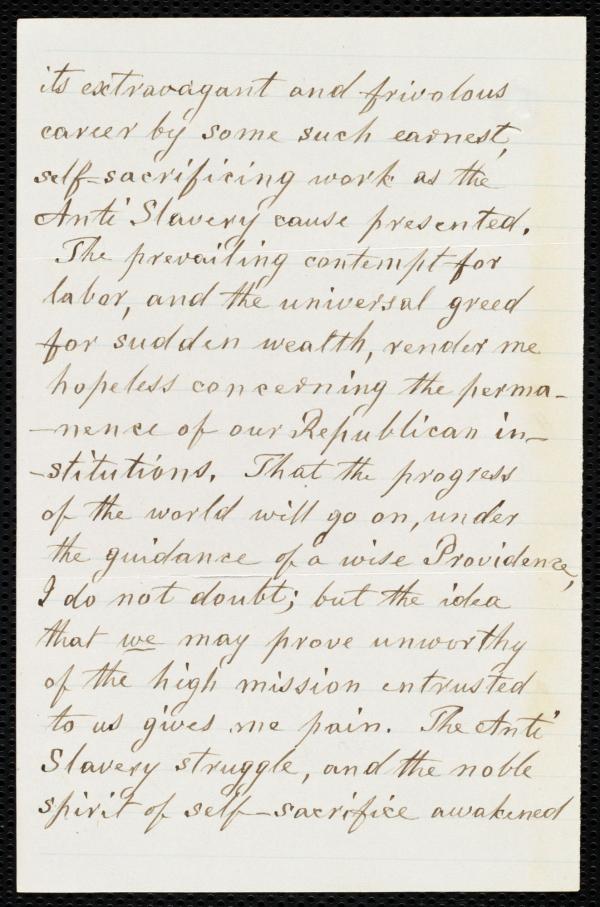 its extravagant and frivolous
career by some such earnest,
self-sacrificing work as the
Anti Slavery cause presented.
The prevailing contempt for
labor, and the universal greed
for sudden wealth, render me
hopeless concerning the perma-
-nence of our Republican in-
-stitutions. That the progress
of the world will go on, under
the guidance of a wise Providence,
I do not doubt; but the idea
that we may prove unworthy
of the high mission entrusted
to us gives me pain. The Anti
Slavery struggle, and the noble
spirit of self-sacrifice awakened